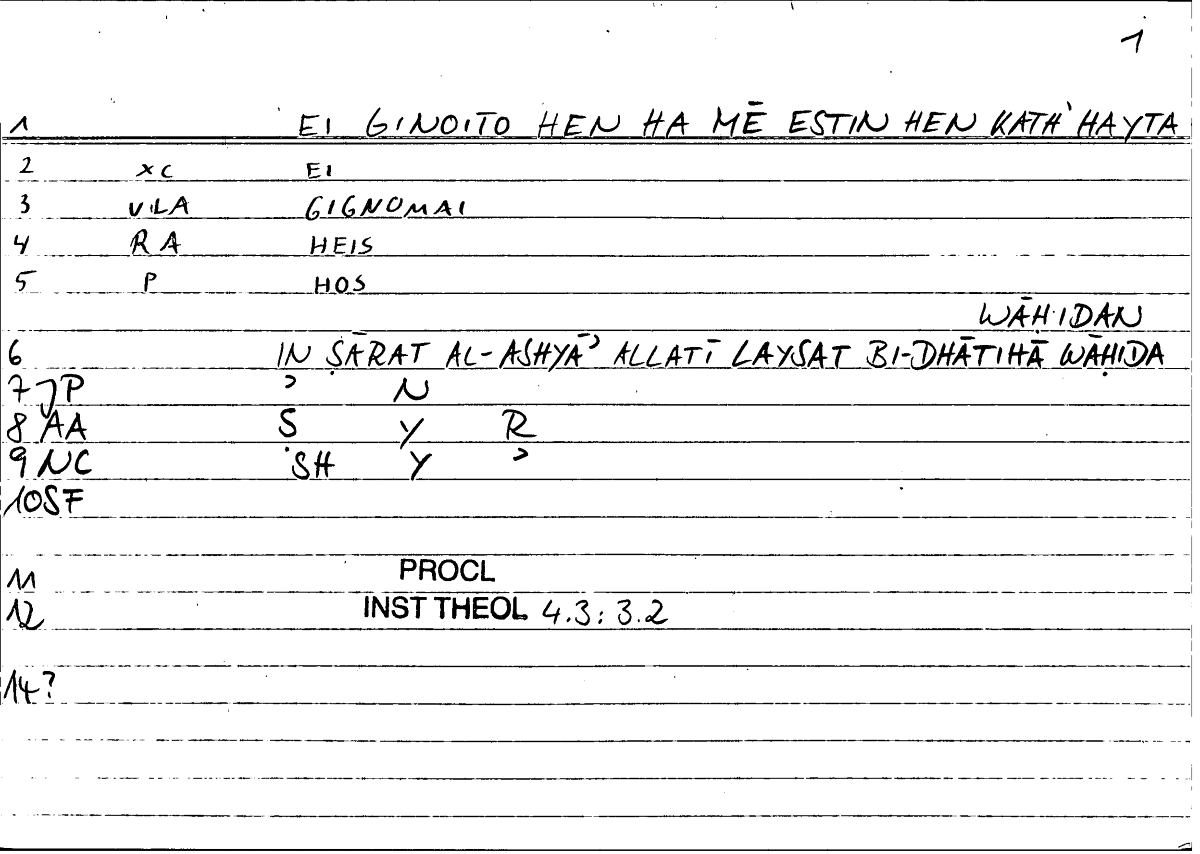 1
1 EI GINOITO HEN HA MĒ ESTIN HEN KATH' HAYTA
2 XC EI
3 VLA GIGNOMAI
4 RA HEIS
5 P HOS
WĀḤIDAN
6 IN ṢĀRAT AL-ASHYĀʾ ALLATĪ LAYSAT BI-DHĀTIHĀ WĀḤIDA
7 JP ʾ N
8 AA Ṣ Y R
9 NC SH Y ʾ
10 SF
11 PROCL
12 INST THEOL 4.3: 3.2
14?